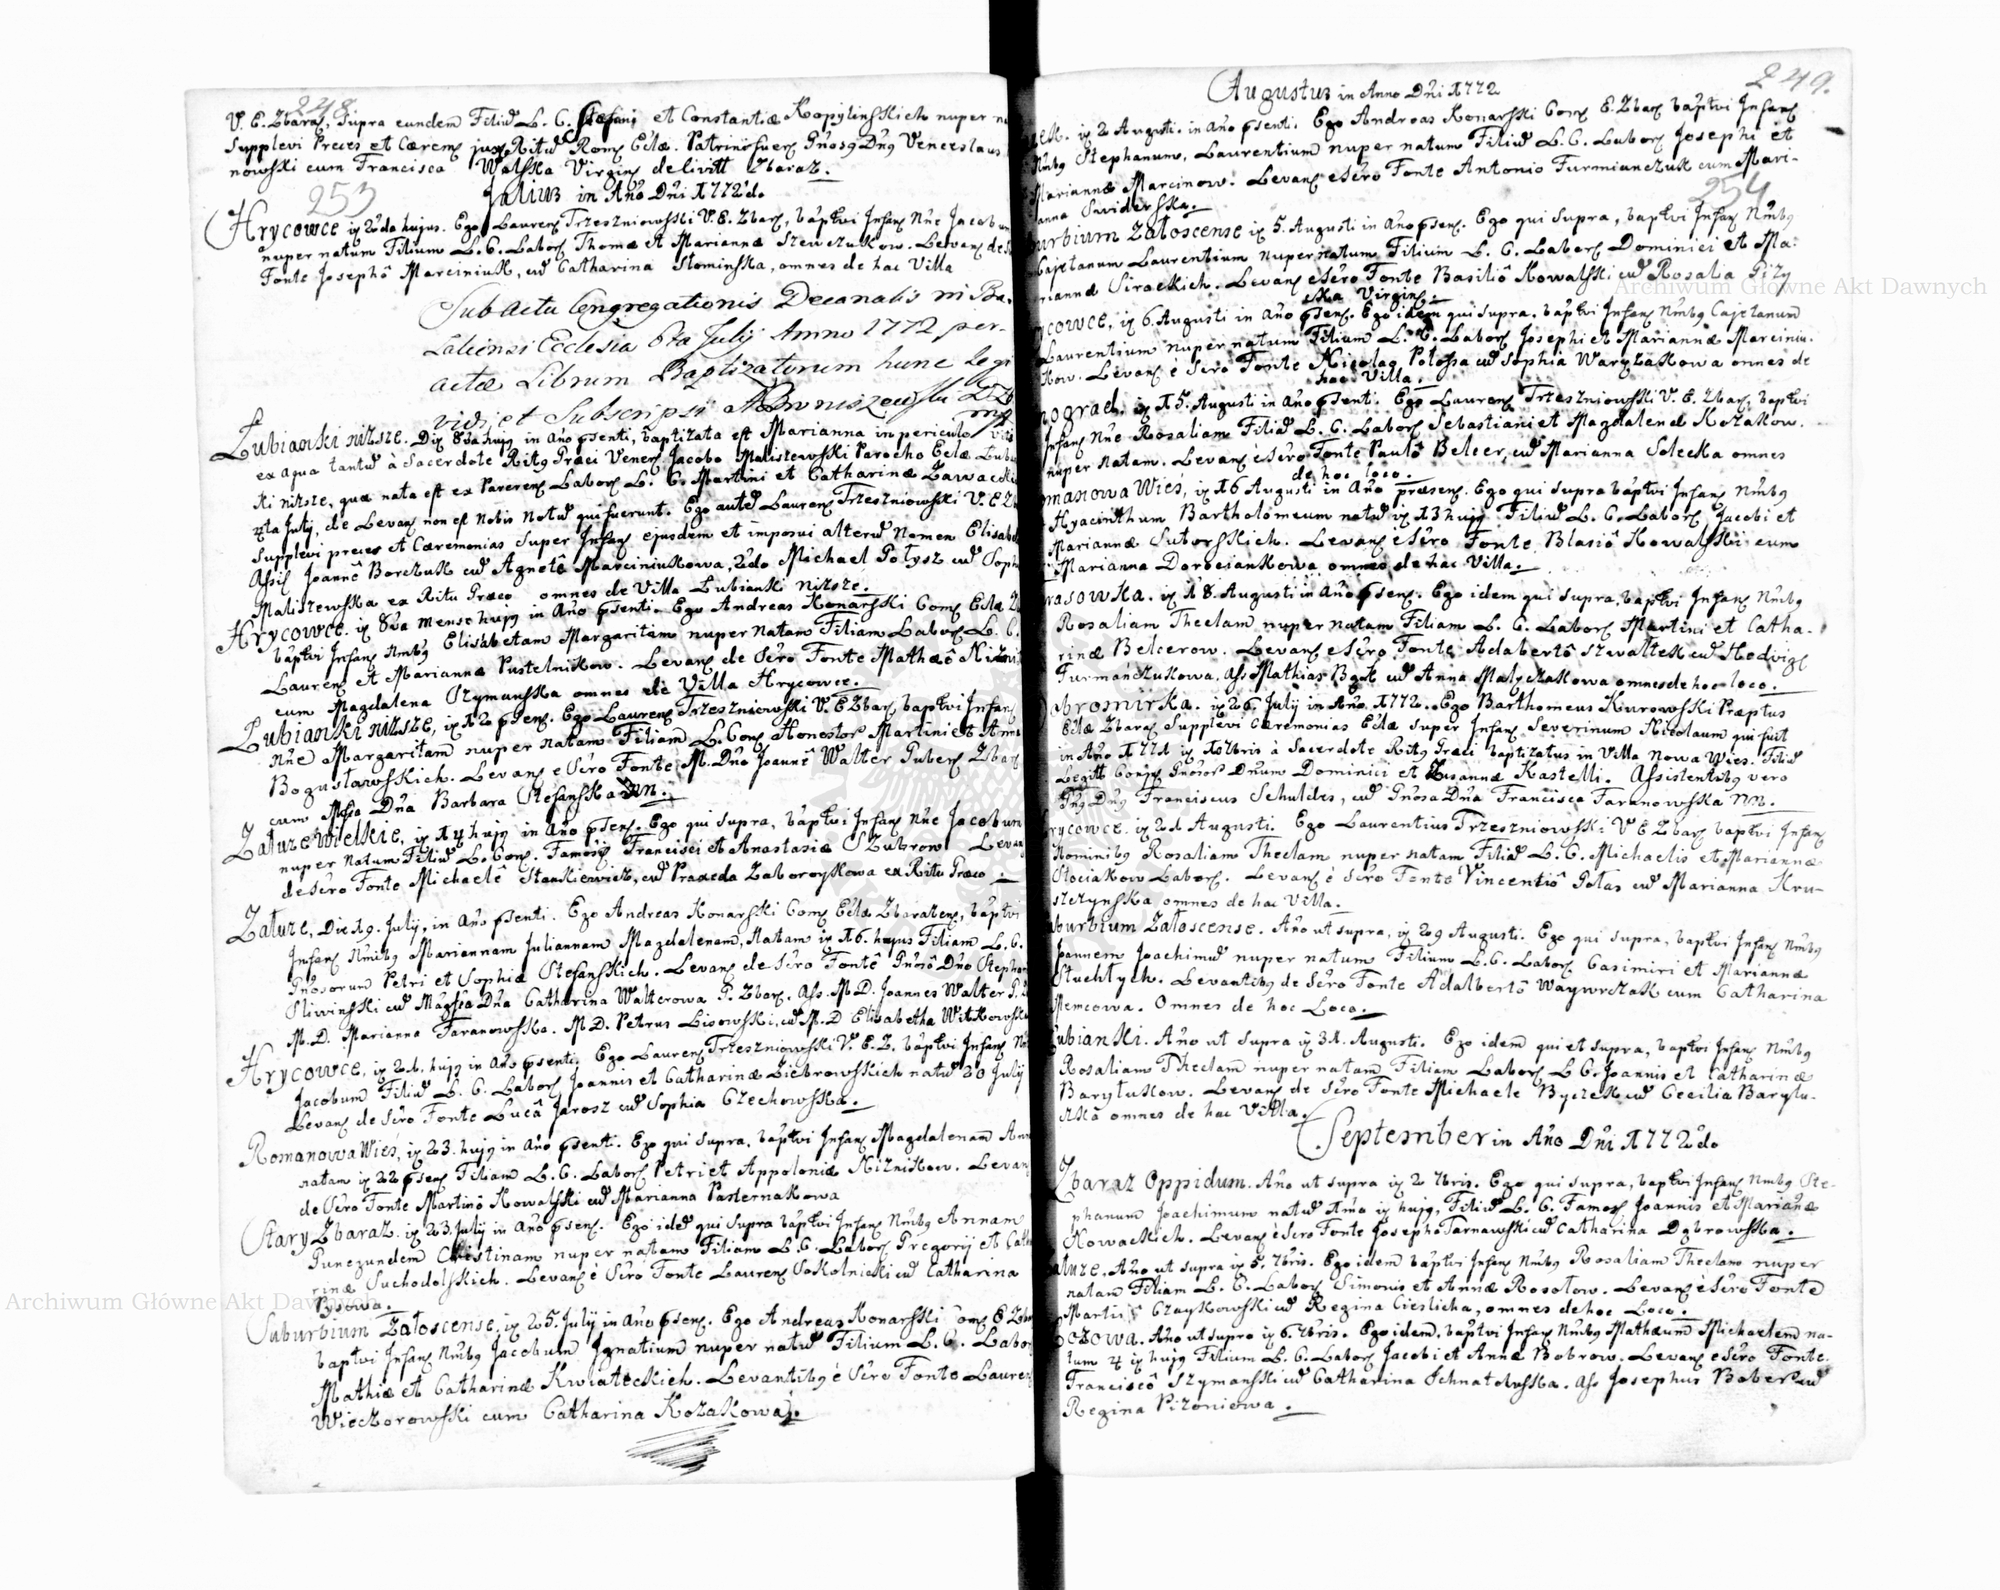 248.
V. E. Zbaraz, supra eundem Filiū L. C. Stefani et Constantiæ Kopylinskich nuper
Supplevi Preces et Cærem juxta Ritū Rom Eclæ. Patrini fuerę Gnosg Dng Venceslaus
nowski cum Francisca Walska Virginę de Civitt Zbaraz.
253
Julius in Año Dñi 1772do
Hrycowce iꝫ 2da hujus. Ego Laurenę Trzeszniowski V. E. Zbarę, baptvi Infanę Nñe Jacobum
nuper natum Filium L. C. Laborę Thomæ et Mariannæ Szewczukow. Levanę de
Fonte Josephô Marciniuk, cū Catharina Slominska, omnes de hac Villa
Sub actu Congregationis Decanalis in Ba-
Ecclesia 8va Julij Anno 1772 per-
actæ Librum Baptizatorum hunc legi
vidi et Subscripsi
Łubianki nizsze. Die 8va hujg in Año psenti, baptizata est Marianna in periculo
ex aqua tantū à Sacerdote Ritg Græci Venerę Jacobo Maliszewski Parocho Eclæ
ki nizsze, quæ nata est ex Parenę Laborę L. C. Martini et Catharinæ Zawackich
4ta Julij, de Levanę non est nobis notū qui fuerunt. Ego autē Laurenę Trzeszniowski V. E. Z
Supplevi preces et Cæremonias super Infanę ejusdem et imposui alterū Nomen Elisab
Assię Joannê Borczuk cū Agnetê Marciniukowa, 2do Michael Połysz cū Soph
Maliszewska ex Ritu Græco omnes de Villa Łubianki nizsze.
Hrycowce. iꝫ 8va mense hujg in Año psenti. Ego Andreas Konarski Comę Eclæ Z
baptvi Infanę Nmibg Elisabetam Margaritam nuper natam Filiam Laborę L. C.
Laurenę et Mariannæ Pustelnikow. Levanę de Scro Fonte Mathæô
cum Magdalena Szymanska omnes de Villa Hrycowce.
Łubianki nizsze, iꝫ 12 psenę. Ego Laurenę Trzeszniowski V. E Zbarę baptvi Infanę
Nñe Margaritam nuper natam Filiam L. Conę Honestorę Martini et Annæ
Bogusławskich. Levanę e Scro Fonte M. Dño Joannê Walter Pubenę Zbarę
cum Mfia Dña Barbara Stefanska nn.
Załuze Wielkie, iꝫ 14 hujg in Año psenę. Ego qui supra, baptvi Infanę Nñe Jacobum
nuper natum Filiū L. Conę. Famosię Francisci et Anastasiæ Szubrow Levanę
de Scro Fonte Michaelê Stankiewicz, cū Praxeda Zaborozykowa ex Ritu Græco.
Załuze, Die 19. July, in Año psenti. Ego Andreas Konarski Comę Eclæ Zbarazenę, baptvi
Infanę Nmibg Mariannam Juliannam Magdalenam, Natam iꝫ 16. hujus Filiam L. C.
Gnosorum Petri et Sophiæ Stefanskich. Levanę de Scro Fontê Gnosô Dño Steph
Sliwinski cū Magfca Dña Catharina Walterowa P. Zbarę. Ass. M D. Joannes Walter
M. D. Marianna Taranowska. M D. Petrus Lisowski, cū M. D Elisabetha Witkowska
Hrycowce, iꝫ 21. hujg in Año psenti. Ego Laurenę Trzeszniowski V. E. Z. baptvi Infanę
Jacobum Filiū L. C. Laborę Joannis et Catharinæ Ziebrowskich natū 20 July
Levanę de Scro Fonte Lucâ Jarosz cū Sophia Czechowska.
Romanowa Wies, iꝫ 23. hujg in Año psenti. Ego qui supra, baptvi Infanę Magdalenam Ann
natam iꝫ 22 psenę Filiam L. C. Laborę Petri et Appoloniæ Niznikow. Levan
de Scro Fonte Martinô Kowalski cū Marianna Pasternakowa
Stary Zbaraz. iꝫ 23. July in Año psenę. Ego idē qui supra baptvi Infanę Nmibg Annam
Cunegundem Christinam nuper natam Filiam L. C. Laborę Gregorij et Catha
rinæ Suchodolskich. Levanę è Scro Fonte Laurenę Sokolnicki cū Catharina
Pysowa.
Suburbium Załoscense, iꝫ 25. July in Año psenę. Ego Andreas Konarski Comę E Zb
baptvi Infanę Nmibg Jacobum Ignatium nuper natū Filium L. C. Labor
Mathiæ et Catharinæ Kwiateckich. Levantibg è Scro Fonte Lauren
Wieczorowski cum Catharina Kozakowa.
249.
Augustus in Anno Dñi 1772
iꝫ 2 Augusti. in Año psenti. Ego Andreas Konarski Comę E. Zbarę baptvi Infanę
Nmibg Stephanum, Laurentium nuper natum Filiū L. C. Laborę Josephi et
Mariannæ Marcinow. Levanę e Scro Fonte Antonio Furmanczuk cum Mari-
anna Swiderska.
254
urbium Załoscense iꝫ 5. Augusti in Año psenę. Ego qui supra, baptvi Infanę Nmibg
Cajetanum Laurentium nuper natum Filium L. C. Laborę Dominici et Ma-
riannæ Sirackich. Levanę e Scro Fonte Basiliô Kowalski cū Rosalia Gizy
ska Virginę.
ycowce, iꝫ 6. Augusti in Año psenę. Ego idem qui supra. baptvi Infanę Nmibg Cajetanum
Laurentium nuper natum Filium L. C. Laborę Josephi et Mariannæ Marciniu-
kow. Levanę e Scro Fonte Nicolao Połosza cū Sophia Waryzakowa omnes de
hac Villa.
nograd. iꝫ 15. Augusti in Año psenti. Ego Laurenę Trzeszniowski V. E. Zbarę baptvi
Infanę Nñe Rosaliam Filiā L. C. Laborę Sebastiani et Magdalenæ Kozakow.
nuper natam. Levanę e Scro Fonte Paulô Belcer, cū Marianna Solecka omnes
de hoc loco.
manowa Wies, iꝫ 16 Augusti in Año præsenę. Ego qui supra baptvi Infanę Nmibg
Hyacinthum Bartholomeum natū iꝫ 13 hujg Filiū L. C. Laborę Jacobi et
Mariannæ Sutorskich. Levanę e Scro Fonte Blasiô Kowalski cum
Marianna Doroeiankowa omnes de hac Villa.
rasowka. iꝫ 18. Augusti in Año psenę. Ego idem qui supra, baptvi Infanę Nmibg
Rosaliam Theclam nuper natam Filiam L. C. Laborę Martini et Catha-
rinæ Belcerow. Levanę e Scro Fonte Adalbertô Szwałtek cū Hedvigę
Furmánczukowa, Ass Mathias Bąk cū Anna Małyczakowa omnes de hoc loco.
abromirka. iꝫ 26. July in Año. 1772. Ego Barthomeus Kurowski Præptus
Eclæ Zbarę Supplevi Cæremonias Eclæ super Infanę Severinum Nicolaum qui fuit
in Año 1771 iꝫ Xbris à Sacerdote Ritg Græci baptizatus in Villa Nowa Wies. Filiū
Legitt Conję Gnosorę Dnum Dominici et Zusannæ Kastelli. Assistentibg vero
Gng Dng Franciscus Schuldes, cū Gnosa Dña Francisca Taranowska nn.
rycowce. iꝫ 21 Augusti. Ego Laurentius Trzeszniowski V E Zbarę baptvi Infanę
Nominibg Rosaliam Theclam nuper natam Filiā L. C. Michaelis et Mariannæ
Stociakow Laborę. Levanę è Scro Fonte Vincentiô Gołas cū Marianna Kru-
szczynska, omnes de hac Villa.
burbium Załoscense. Año ut supra, iꝫ 29 Augusti. Ego qui supra, baptvi Infanę Nmibg
Joannem Joachimū nuper natum Filium L. C. Laborę Casimiri et Mariannæ
Stuchłych. Levantibg de Scro Fonte Adalbertô Waywrczak cum Catharina
Nemcowa. Omnes de hoc Loco.
ubianki. Año ut supra iꝫ 31. Augusti. Ego idem qui et supra, baptvi Infanę Nmibg
Rosaliam Theclam nuper natam Filiam Laborę L C. Joannis et Catharinæ
Baryłukow. Levanę de Scro Fonte Michaele Byczek cū Cecilia Baryłu-
szka omnes de hac Villa.
September in Año Dñi 1772do
Zbaraz Oppidum. Año ut supra iꝫ 2 7bris. Ego qui supra, baptvi Infanę Nmibg Ste-
phanum Joachimum natū 1ma iꝫ hujg, Filiū L. C. Famosę Joannis et Marianæ
Nowackich. Levanę è Scro Fonte Josephô Tarnawski cū Catharina Dąbrowska.
ałuze. Año ut supra iꝫ 5. 7bris. Ego idem baptvi Infanę Nmibg Rosaliam Theclam nuper
natam Filiam L. C. Laborę Simonis et Annæ Rosołow. Levanę è Scro Fonte
Martiô Czaykowski cū Regina Cieslicha, omnes de hoc Loco.
oczowa. Año ut supra iꝫ 6. 7bris. Ego idem, baptvi Infanę Nmibg Mathæum Michaelem na-
tum 4 iꝫ hujg Filium L. C. Laborę Jacobi et Annæ Bobrow. Levanę e Scro Fonte.
Franciscô Szymanski cū Catharina Ochnatowska. Ass Josephus Bober cū
Regina Pizoniowa.
Archiwum Główne Akt Dawnych
Archiwum Główne Akt Dawnych